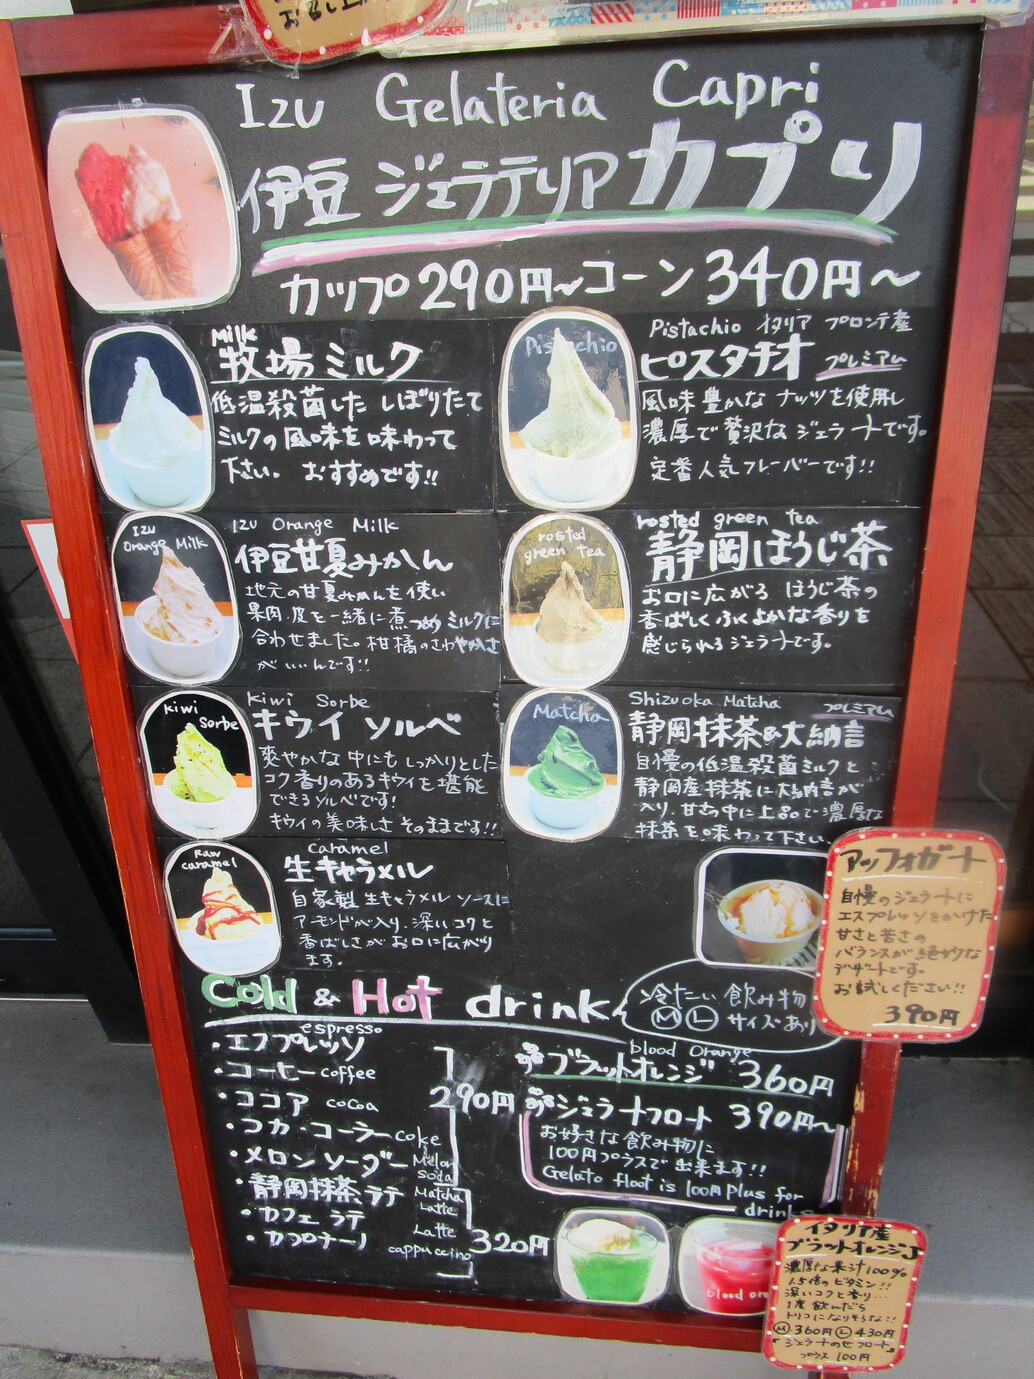 お召し上
Izu Gelateria Capri
伊豆 ジェラテリア カプリ
カップ290円〜コーン340円〜
Milk
牧場ミルク
低温殺菌した しぼりたて
ミルクの風味を味わって
下さい。 おすすめです!!
Pistachio
Pistachio イタリア ブロンテ産
ピスタチオ プレミアム
風味豊かな ナッツを使用し
濃厚で贅沢な ジェラートです。
定番人気フレーバーです!!
Izu
Orange Milk
Izu Orange Milk
伊豆甘夏みかん
地元の甘夏みかんを使い
果肉・皮を一緒に煮つめ ミルクに
合わせました。柑橘のさわやかさ
がいいんです!!
rosted
green tea
rosted green tea
静岡ほうじ茶
お口に広がる ほうじ茶の
香ばしくふくよかな香りを
感じられるジェラートです。
kiwi
Sorbe
kiwi Sorbe
キウイ ソルベ
爽やかな中にもしっかりとした
コク香りのあるキウイを堪能
できるソルベです!
キウイの美味しさ そのままです!!
Matcha
Shizuoka Matcha プレミアム
静岡抹茶&大納言
自慢の低温殺菌ミルクと
静岡産抹茶に大納言が
入り、甘さの中に上品で濃厚な
抹茶を味わって下さい
Raw
caramel
caramel
生キャラメル
自家製生キャラメルソースに
アーモンドが入り、深いコクと
香ばしさがお口に広がり
ます。
アッフォガート
自慢のジェラートに
エスプレッソをかけた
甘さと苦さの
バランスが絶妙な
デザートです。
お試しください!!
390円
Cold & Hot drink
冷たい飲み物
Ⓜ Ⓛ サイズあり
espresso
・エスプレッソ
・コーヒー coffee
・ココア cocoa
290円
・コカ・コーラー coke
・メロンソーダー Melon Soda
・静岡抹茶ラテ Matcha Latte
・カフェラテ Latte
・カプチーノ cappuccino 320円
blood Orange
ブラッドオレンジ 360円
ジェラートフロート 390円〜
お好きな飲み物に
100円プラスで出来ます!!
Gelato float is 100円 plus for
drinks
blood ora
イタリア産
ブラッドオレンジJ
濃厚な果汁100%
1.5倍のビタミン!!
深いコクと香り…
1度飲んだら
トリコになりそうな!!
Ⓜ360円 Ⓛ430円
「ジェラートのせフロート」
プラス 100円